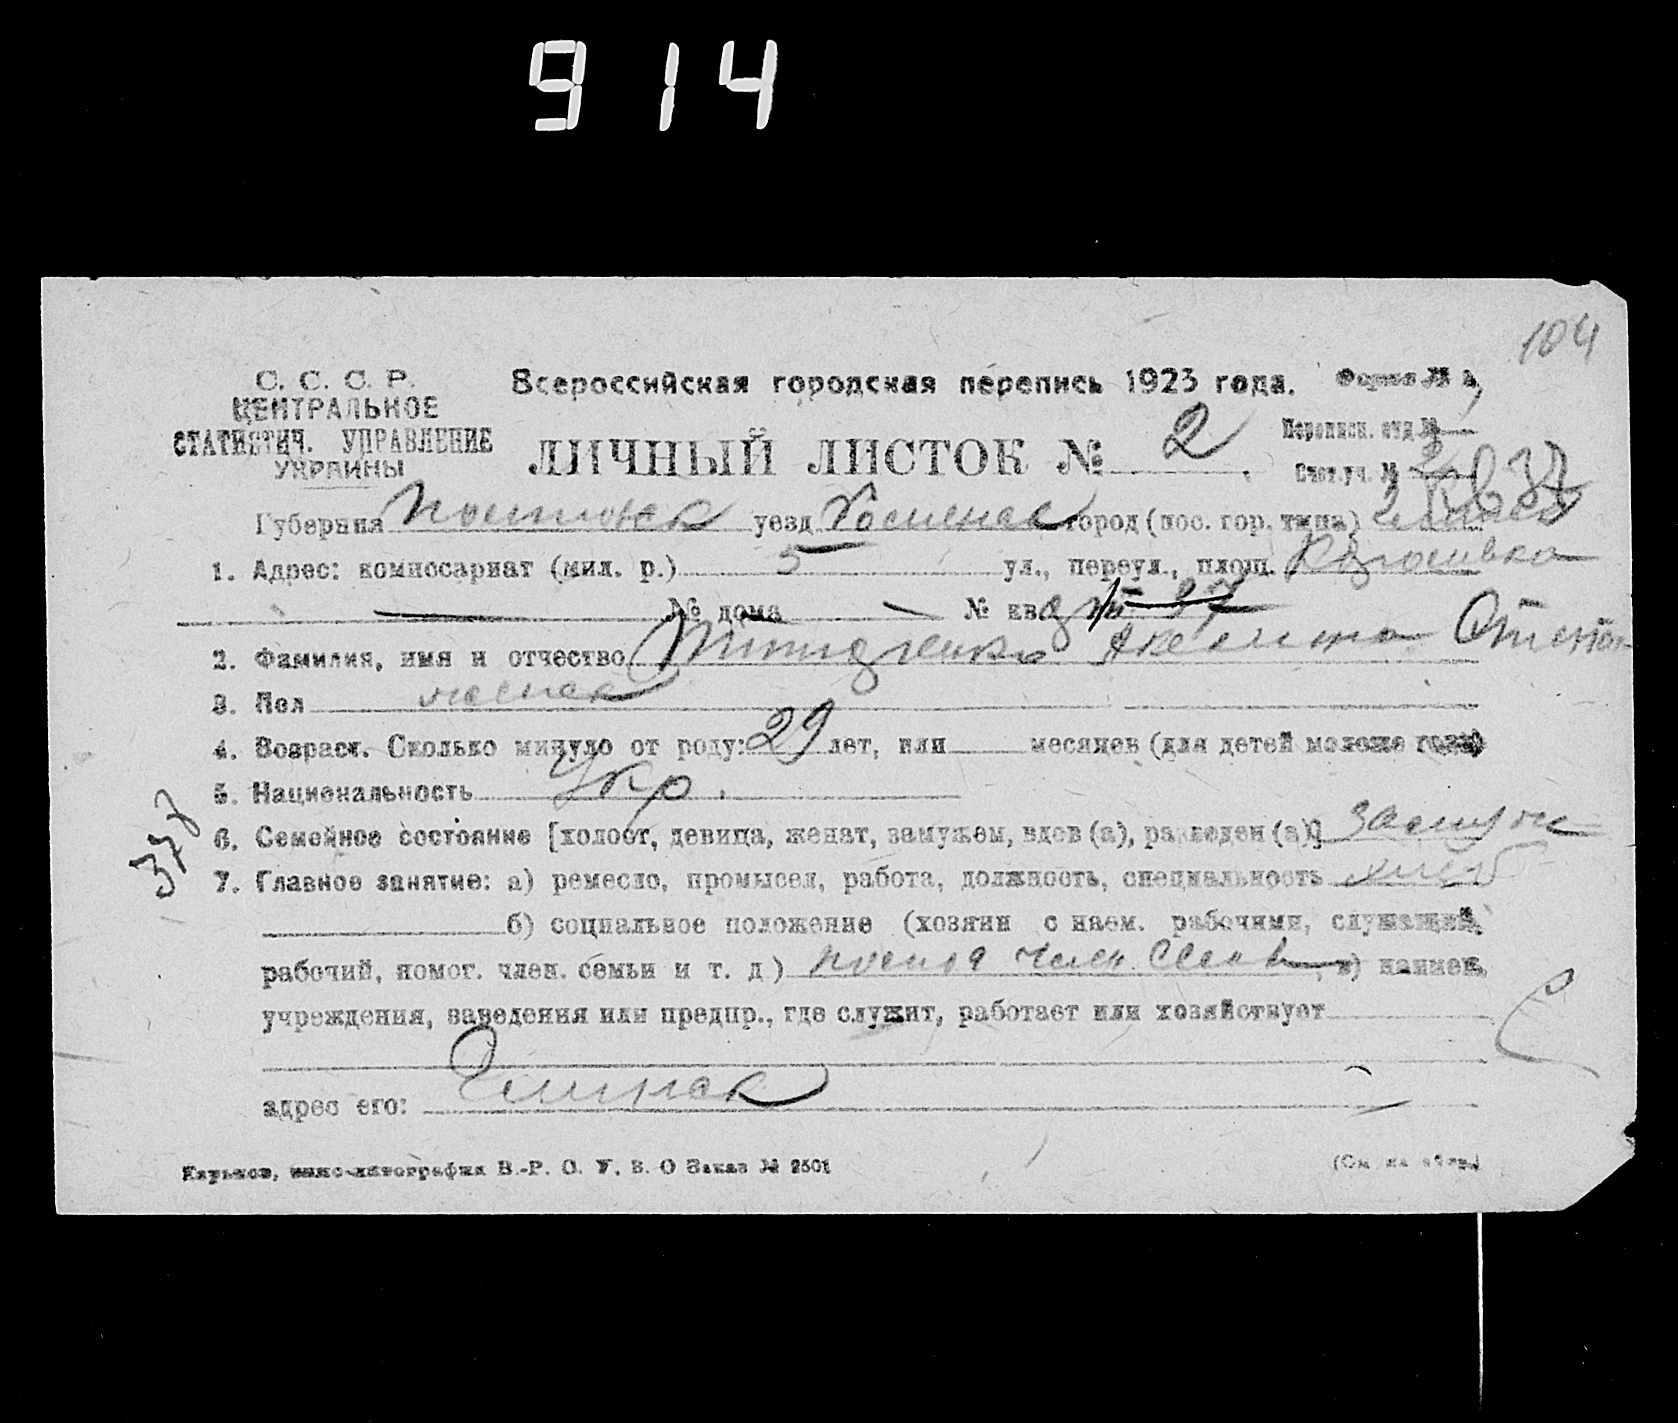 914
104
С. С. С. Р.
ЦЕНТРАЛЬНОЕ
СТАТИСТИЧ. УПРАВЛЕНИЕ
УКРАИНЫ
Всероссийская городская перепись 1923 года. Форма № 2
ЛИЧНЫЙ ЛИСТОК № 2 Переписн. отд №
Счет.уч. № 2
Губерния уезд Роменск город (пос. гор. типа)
1. Адрес: комиосариат (мил. р.) 5 ул., переул., площ.
№ дома № кв 37
2. Фамилия, имя и отчество
3. Пол женск
4. Возраст. Сколько минуло от роду: 29 лет, или месяцев (для детей моложе года)
5. Национальность Укр.
337
6. Семейное состояние [холост, девица, женат, замужем, вдов (а), разведен (а)] замуж
7. Главное занятие: а) ремесло, промысел, работа, должность, специальность хлеб
б) социальное положение (хозяин с наем. рабочими, служащий,
рабочий, помог. член. семьи и т. д) член , в) наимен.
учреждения, заведения или предпр., где служит, работает или хозяйствует
адрес его: Глинск
Харьков, типо-литография В.-Р. О. У. В. О Заказ № 2501 (См на обор.)